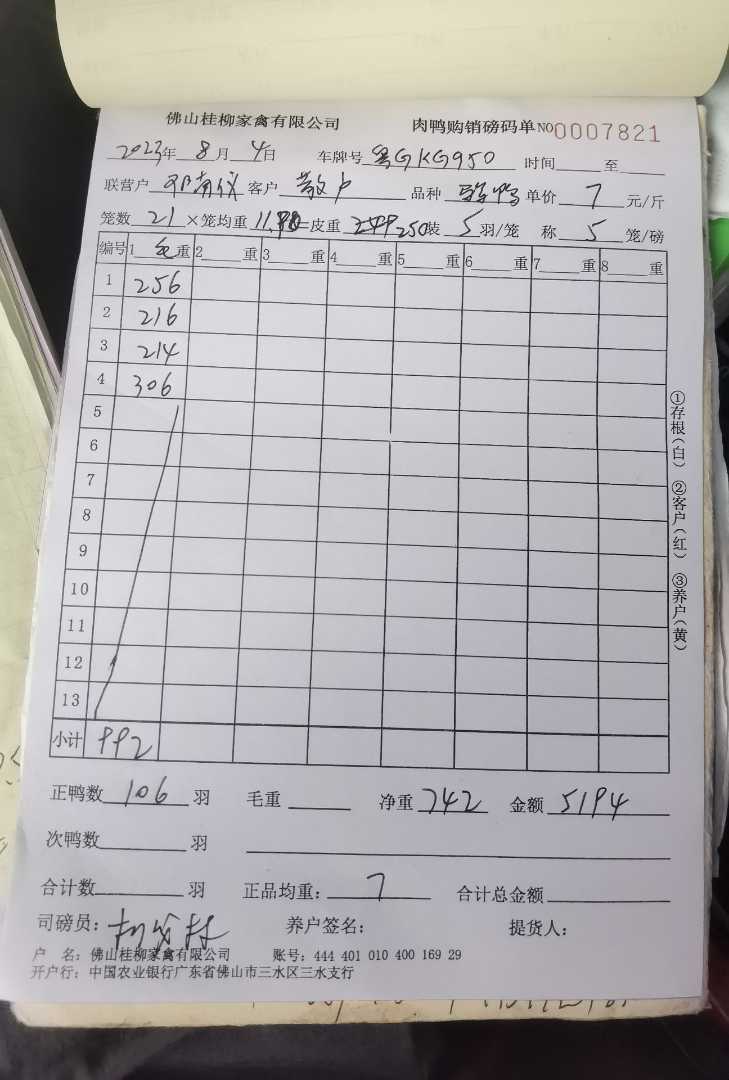 佛山桂柳家禽有限公司 肉鸭购销磅码单 NO0007821
2023年 8月 4日 车牌号 粤GKG950 时间 至
联营户 客户 散户 品种 单价 7 元/斤
笼数 21 ×笼均重 = 皮重 250 装 5 羽/笼 称 5 笼/磅
编号 1 毛 重 2 重 3 重 4 重 5 重 6 重 7 重 8 重
1 256
2 216
3 214
4 306
5
6
7
8
9
10
11
12
13
小计 992
正鸭数 106 羽 毛重 净重 742 金额 5194
次鸭数 羽
合计数 羽 正品均重: 7 合计总金额
司磅员: 养户签名: 提货人:
户 名: 佛山桂柳家禽有限公司 账号: 444 401 010 400 169 29
开户行: 中国农业银行广东省佛山市三水区三水支行
①存根(白) ②客户(红) ③养户(黄)